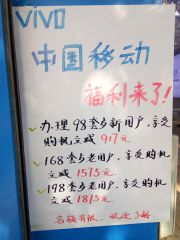 vivo
中国移动
福利来了!
办理98套与新用户,享受
购机立减917元
168套与老用户,享受购机
立减1515元
198套与老用户,享受购机
立减1815元
名额有限,欢迎了解